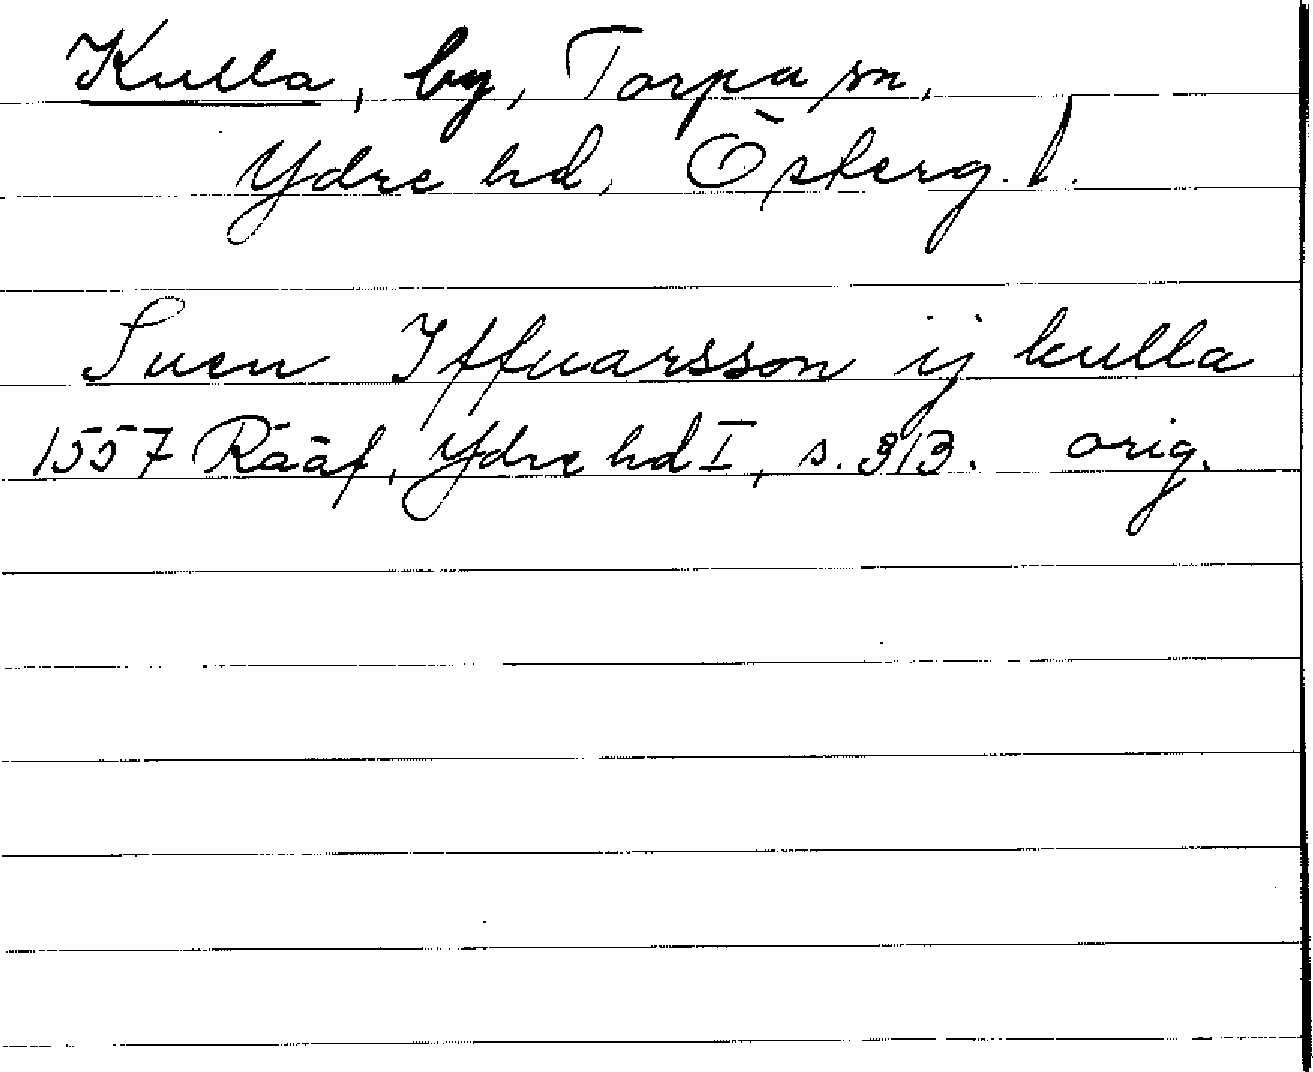 Kulla, by, Torpa sn,
Ydre hd, Österg. l.
Suen Iffuarsson ij kulla
1557 Rääf, Ydre hd I, s. 313. orig.